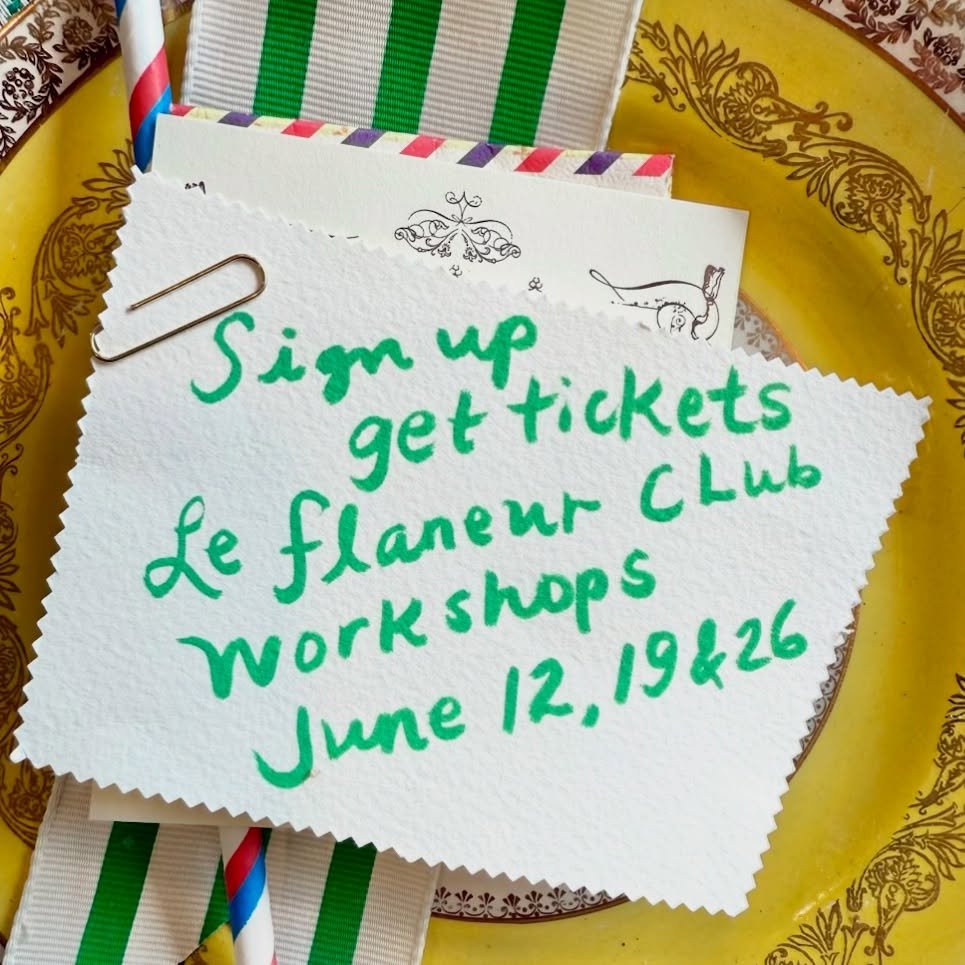 Sign up
get tickets
Le flaneur CLub
workshops
June 12, 19 & 26